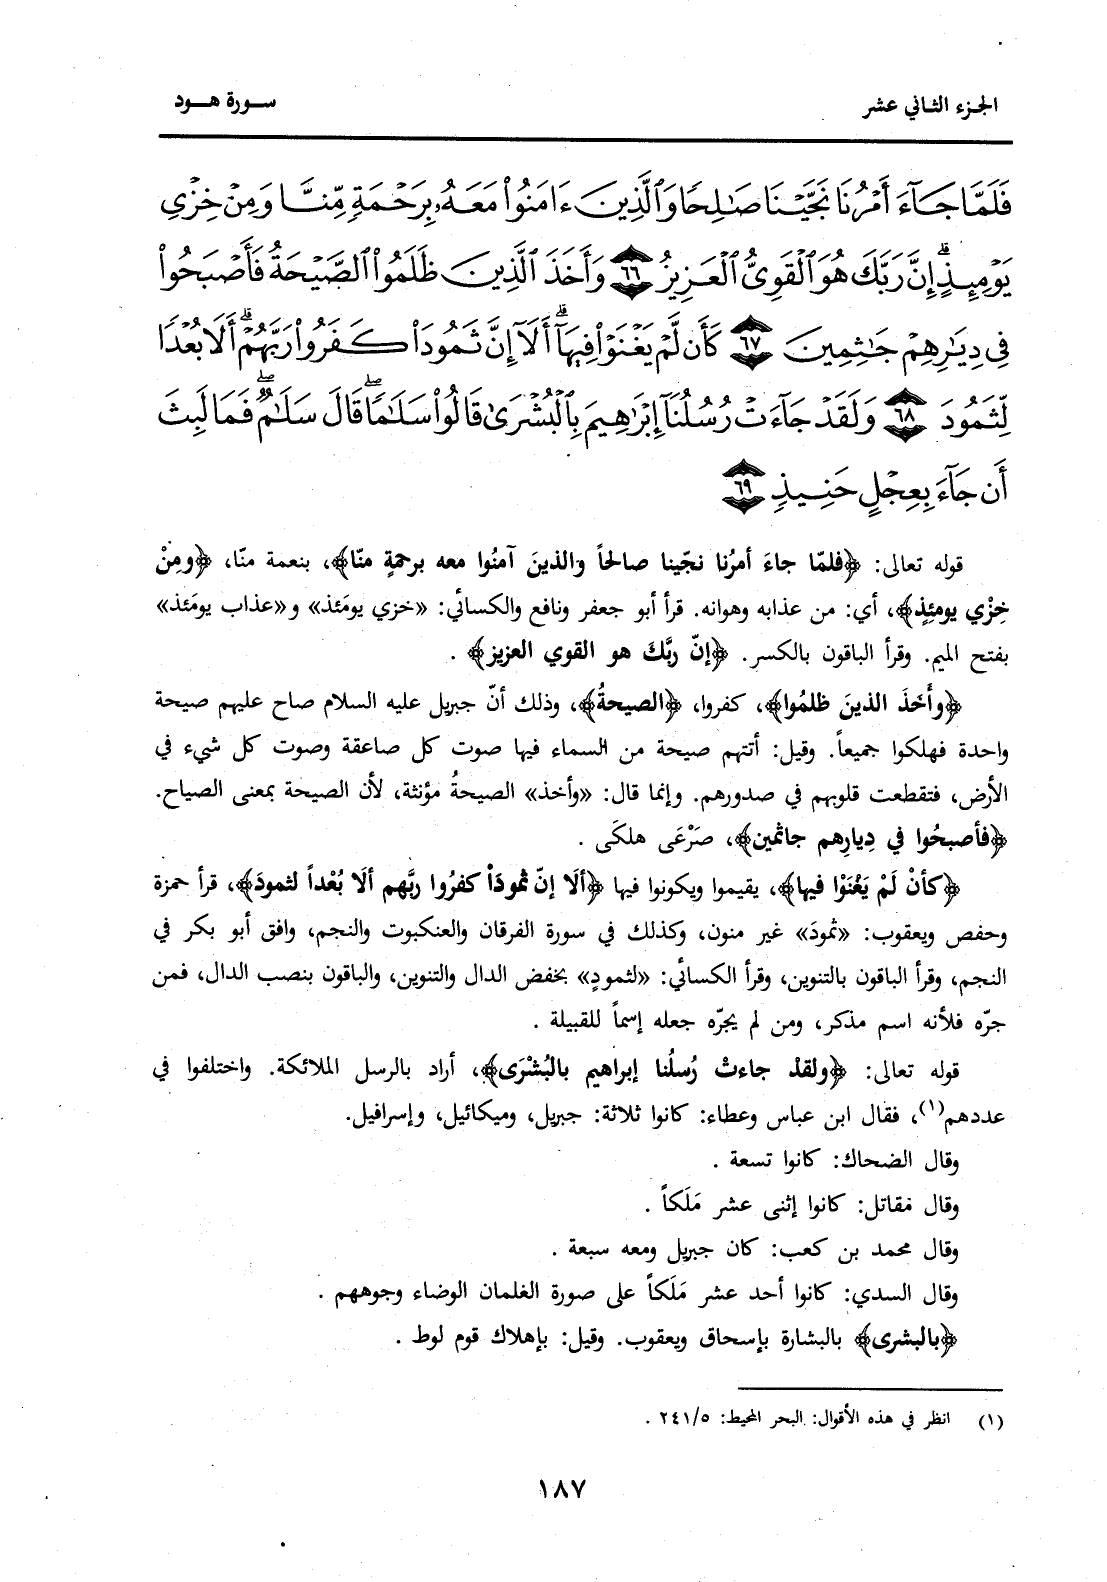 الجزء الثاني عشر
سورة هود
فَلَمَّا جَآءَ أَمْرُنَا نَجَّيْنَا صَٰلِحًا وَٱلَّذِينَ ءَامَنُوا۟ مَعَهُۥ بِرَحْمَةٍ مِّنَّا وَمِنْ خِزْىِ
يَوْمِئِذٍ ۗ إِنَّ رَبَّكَ هُوَ ٱلْقَوِىُّ ٱلْعَزِيزُ ٦٦ وَأَخَذَ ٱلَّذِينَ ظَلَمُوا۟ ٱلصَّيْحَةُ فَأَصْبَحُوا۟
فِى دِيَٰرِهِمْ جَٰثِمِينَ ٦٧ كَأَن لَّمْ يَغْنَوْا۟ فِيهَآ ۗ أَلَآ إِنَّ ثَمُودَا۟ كَفَرُوا۟ رَبَّهُمْ ۗ أَلَا بُعْدًا
لِّثَمُودَ ٦٨ وَلَقَدْ جَآءَتْ رُسُلُنَآ إِبْرَٰهِيمَ بِٱلْبُشْرَىٰ قَالُوا۟ سَلَٰمًا ۖ قَالَ سَلَٰمٌ ۖ فَمَا لَبِثَ
أَن جَآءَ بِعِجْلٍ حَنِيذٍ ٦٩
قوله تعالى: ﴿فلمّا جاءَ أمرُنا نجّينا صالحاً والذينَ آمنُوا معه برحمةٍ منّا﴾، بنعمة منّا، ﴿ومِنْ
خِزْي يومئِذٍ﴾، أي: من عذابه وهوانه. قرأ أبو جعفر ونافع والكسائي: «خزي يومَئذ» و«عذاب يومَئذ»
بفتح الميم. وقرأ الباقون بالكسر. ﴿إنّ ربَّكَ هو القوي العزيز﴾ .
﴿وأَخَذَ الذينَ ظلمُوا﴾، كفروا، ﴿الصيحةُ﴾، وذلك أنّ جبريل عليه السلام صاح عليهم صيحة
واحدة فهلكوا جميعاً. وقيل: أتتهم صيحة من السماء فيها صوت كل صاعقة وصوت كل شيء في
الأرض، فتقطعت قلوبهم في صدورهم. وإنما قال: «وأخذ» الصيحةُ مؤنثة، لأن الصيحة بمعنى الصياح.
﴿فأصبحُوا في دِيارِهم جاثمين﴾، صرْعَى هلكَى .
﴿كأنْ لَمْ يَغْنَوْا فيها﴾، يقيموا ويكونوا فيها ﴿ألَا إنّ ثمودَاْ كفرُوا ربَّهم ألَا بُعْداً لثمودَ﴾، قرأ حمزة
وحفص ويعقوب: «ثمودَ» غير منون، وكذلك في سورة الفرقان والعنكبوت والنجم، وافق أبو بكر في
النجم، وقرأ الباقون بالتنوين، وقرأ الكسائي: «لثمودٍ» بخفض الدال والتنوين، والباقون بنصب الدال، فمن
جرّه فلأنه اسم مذكر، ومن لم يجرّه جعله إسماً للقبيلة .
قوله تعالى: ﴿ولقدْ جاءتْ رُسلُنا إبراهيم بالبُشْرَى﴾، أراد بالرسل الملائكة. واختلفوا في
عددهم(١)، فقال ابن عباس وعطاء: كانوا ثلاثة: جبريل، وميكائيل، وإسرافيل.
وقال الضحاك: كانوا تسعة .
وقال مقاتل: كانوا إثنى عشر مَلَكاً .
وقال محمد بن كعب: كان جبريل ومعه سبعة .
وقال السدي: كانوا أحد عشر مَلَكاً على صورة الغلمان الوضاء وجوههم .
﴿بالبشرى﴾ بالبشارة بإسحاق ويعقوب. وقيل: بإهلاك قوم لوط .
(١) انظر في هذه الأقوال: البحر المحيط: ٢٤١/٥ .
١٨٧